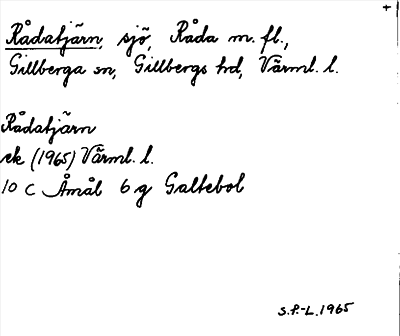 Rådatjärn, sjö, Råda m. fl.,
Gillberga sn, Gillbergs hd, Värml. l.
Rådatjärn
ek (1965) Värml. l.
10 C Åmål 6 g Galtebol
S.P.-L. 1965